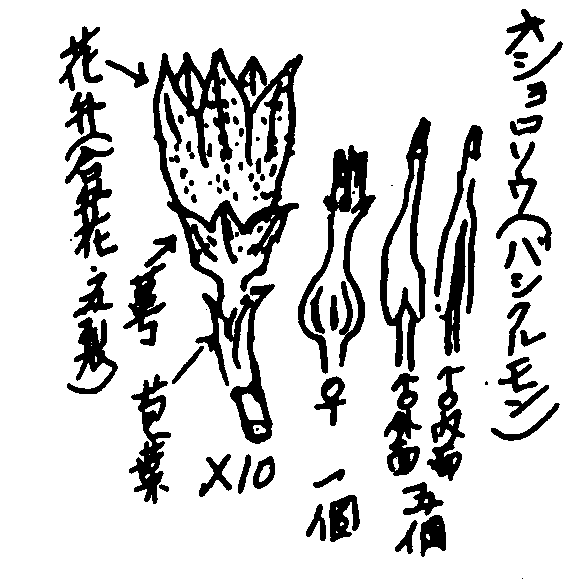 オショロソウ(バシクルモン)
花弁(合弁花・五裂)
萼
苞葉
×10
♀
一個
♂外面
♂内面
五個